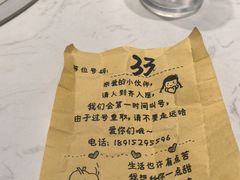 等位号码: 33
亲爱的小伙伴,
请人到齐入座,
我们会第一时间叫号,
由于过号重取,请不要走远哈
爱你们哦~
电话: 18915295596
生活也许有点苦